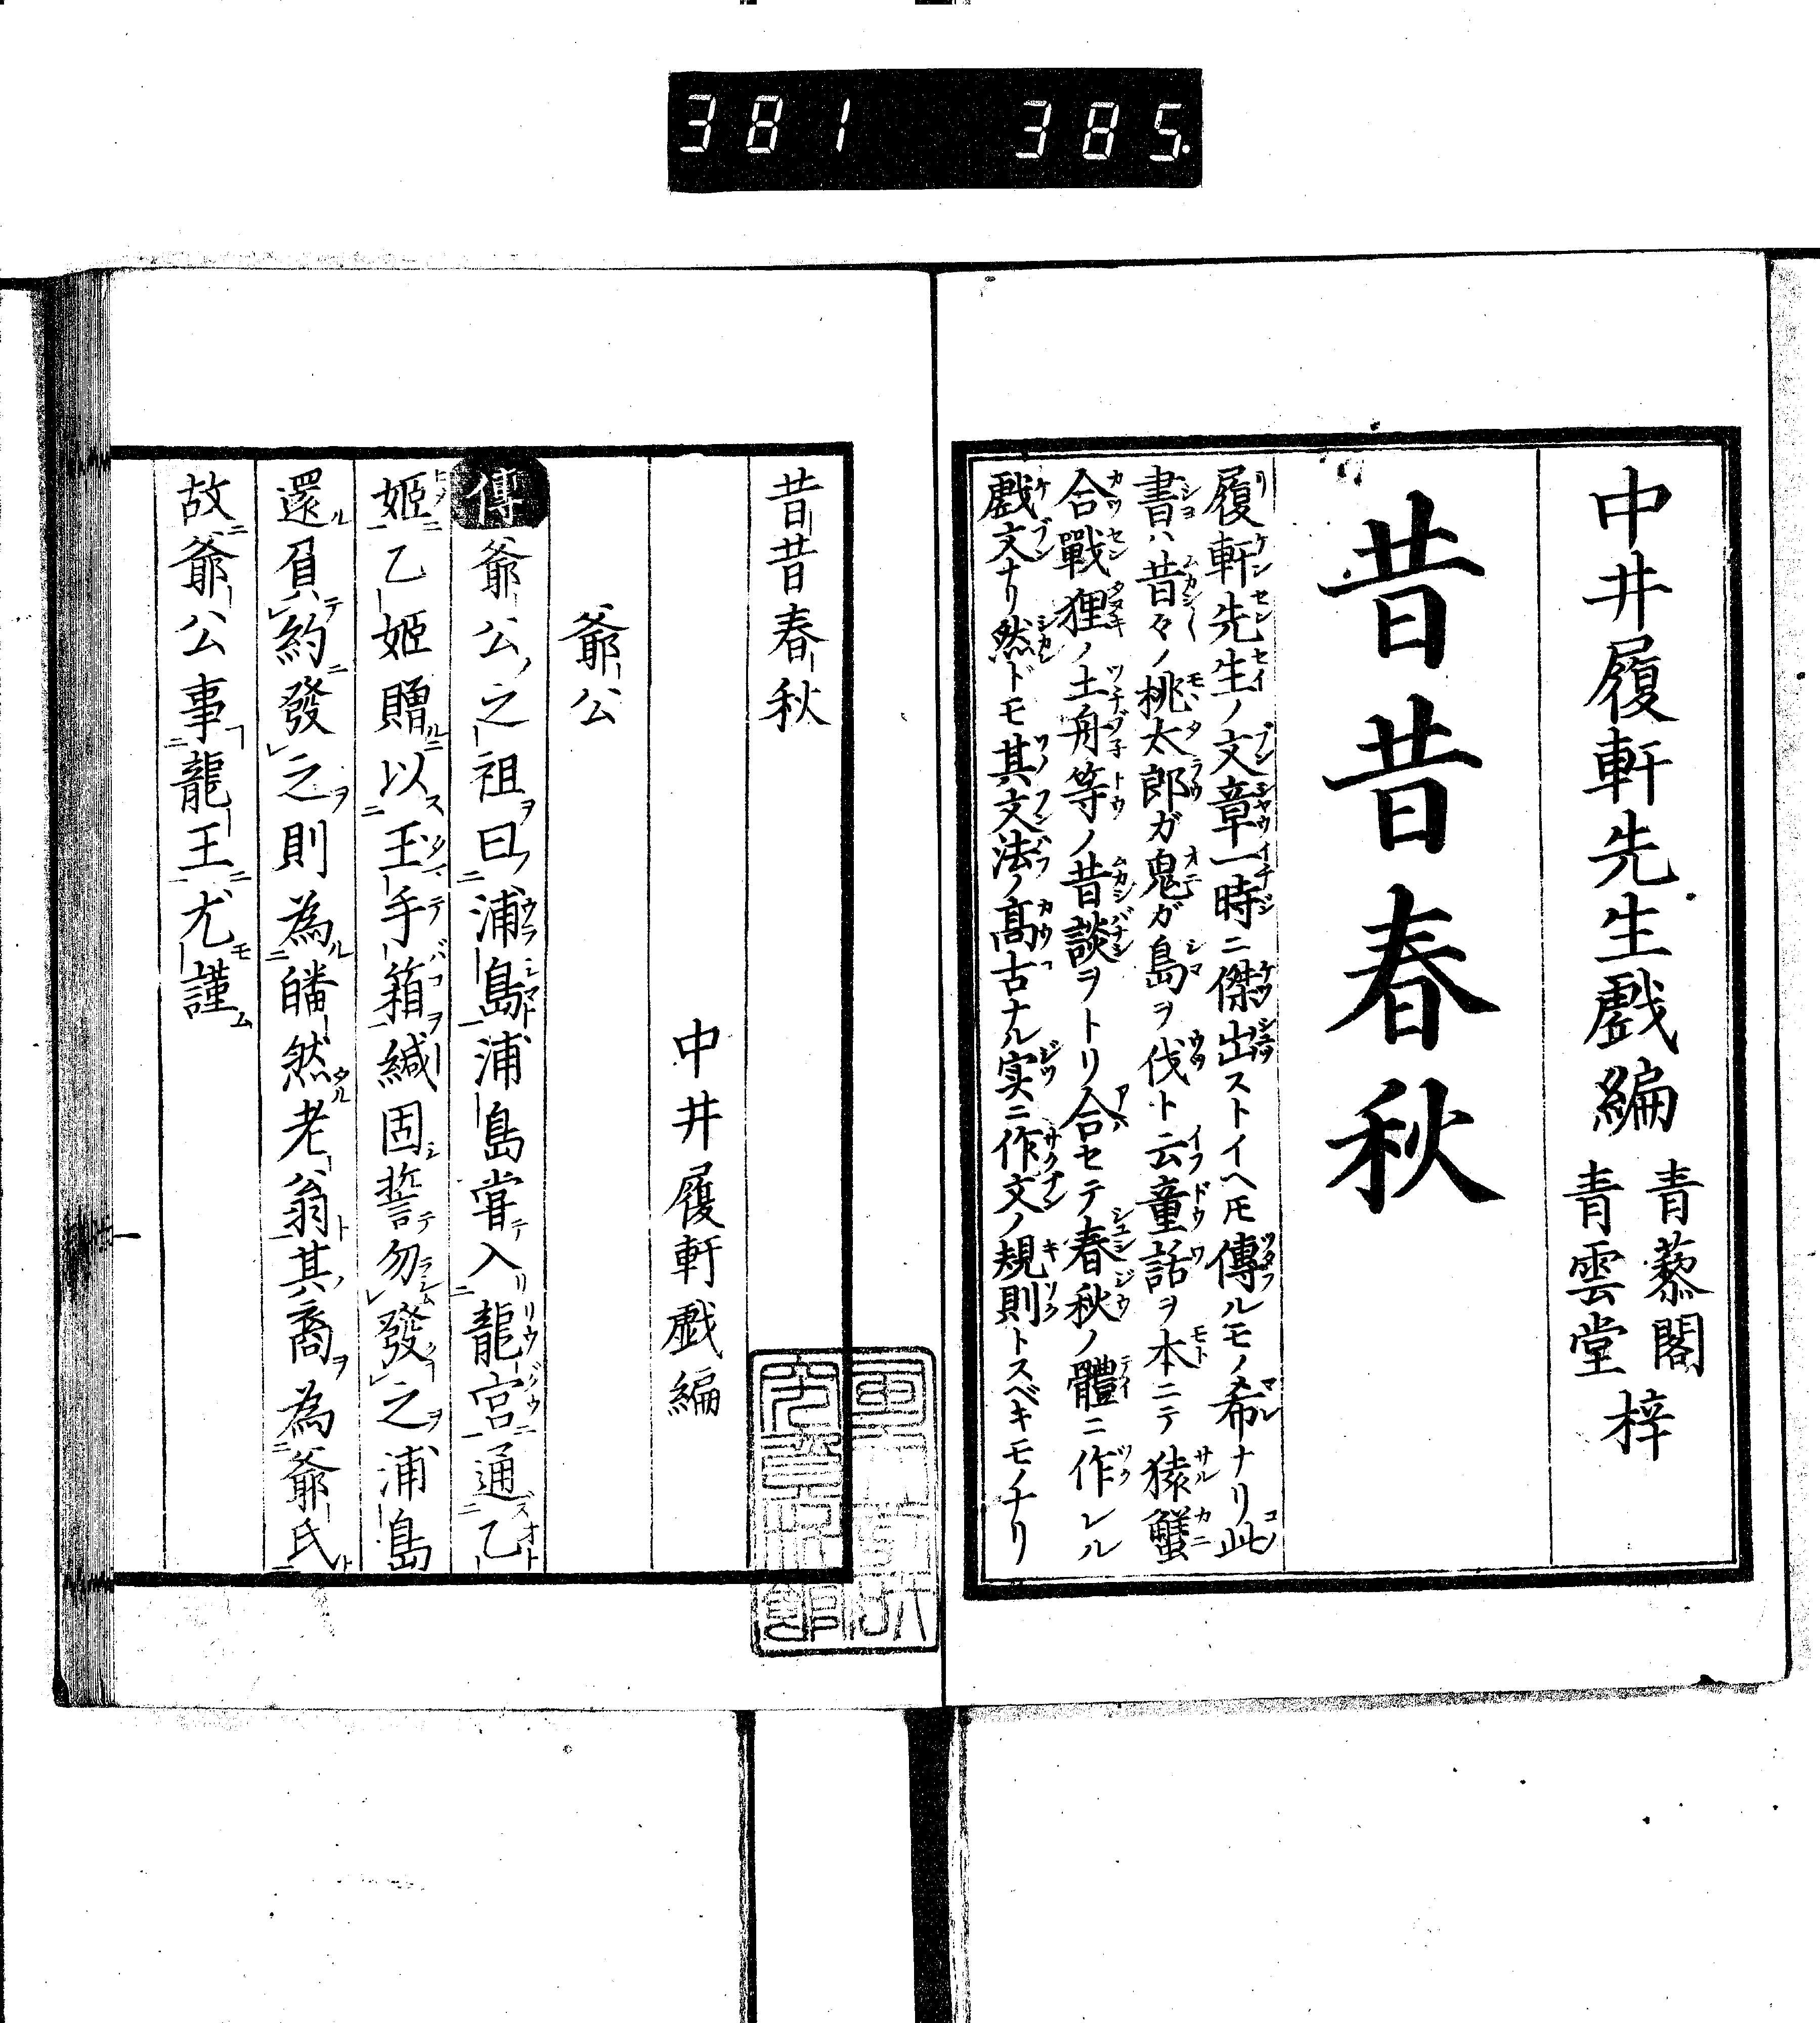 381 385.
中井履軒先生戲編
青藜閣
青雲堂
梓
昔昔春秋
履軒先生ノ文章一時ニ傑出ストイヘ𪜈傳ルモノ希ナリ此
書ハ昔々ノ桃太郎ガ鬼ガ島ヲ伐ト云童話ヲ本ニテ猿蟹
合戰狸ノ土舟等ノ昔談ヲトリ合セテ春秋ノ體ニ作レル
戲文ナリ然ドモ其文法ノ高古ナル実ニ作文ノ規則トスベキモノナリ
昔昔春秋
中井履軒戲編
爺公
傳爺公之祖曰浦島浦島甞入龍宮通乙
姬乙姬贈以玉手箱緘固誓勿發之浦島
還負約發之則為皤然老翁其裔為爺氏
故爺公事龍王尤謹